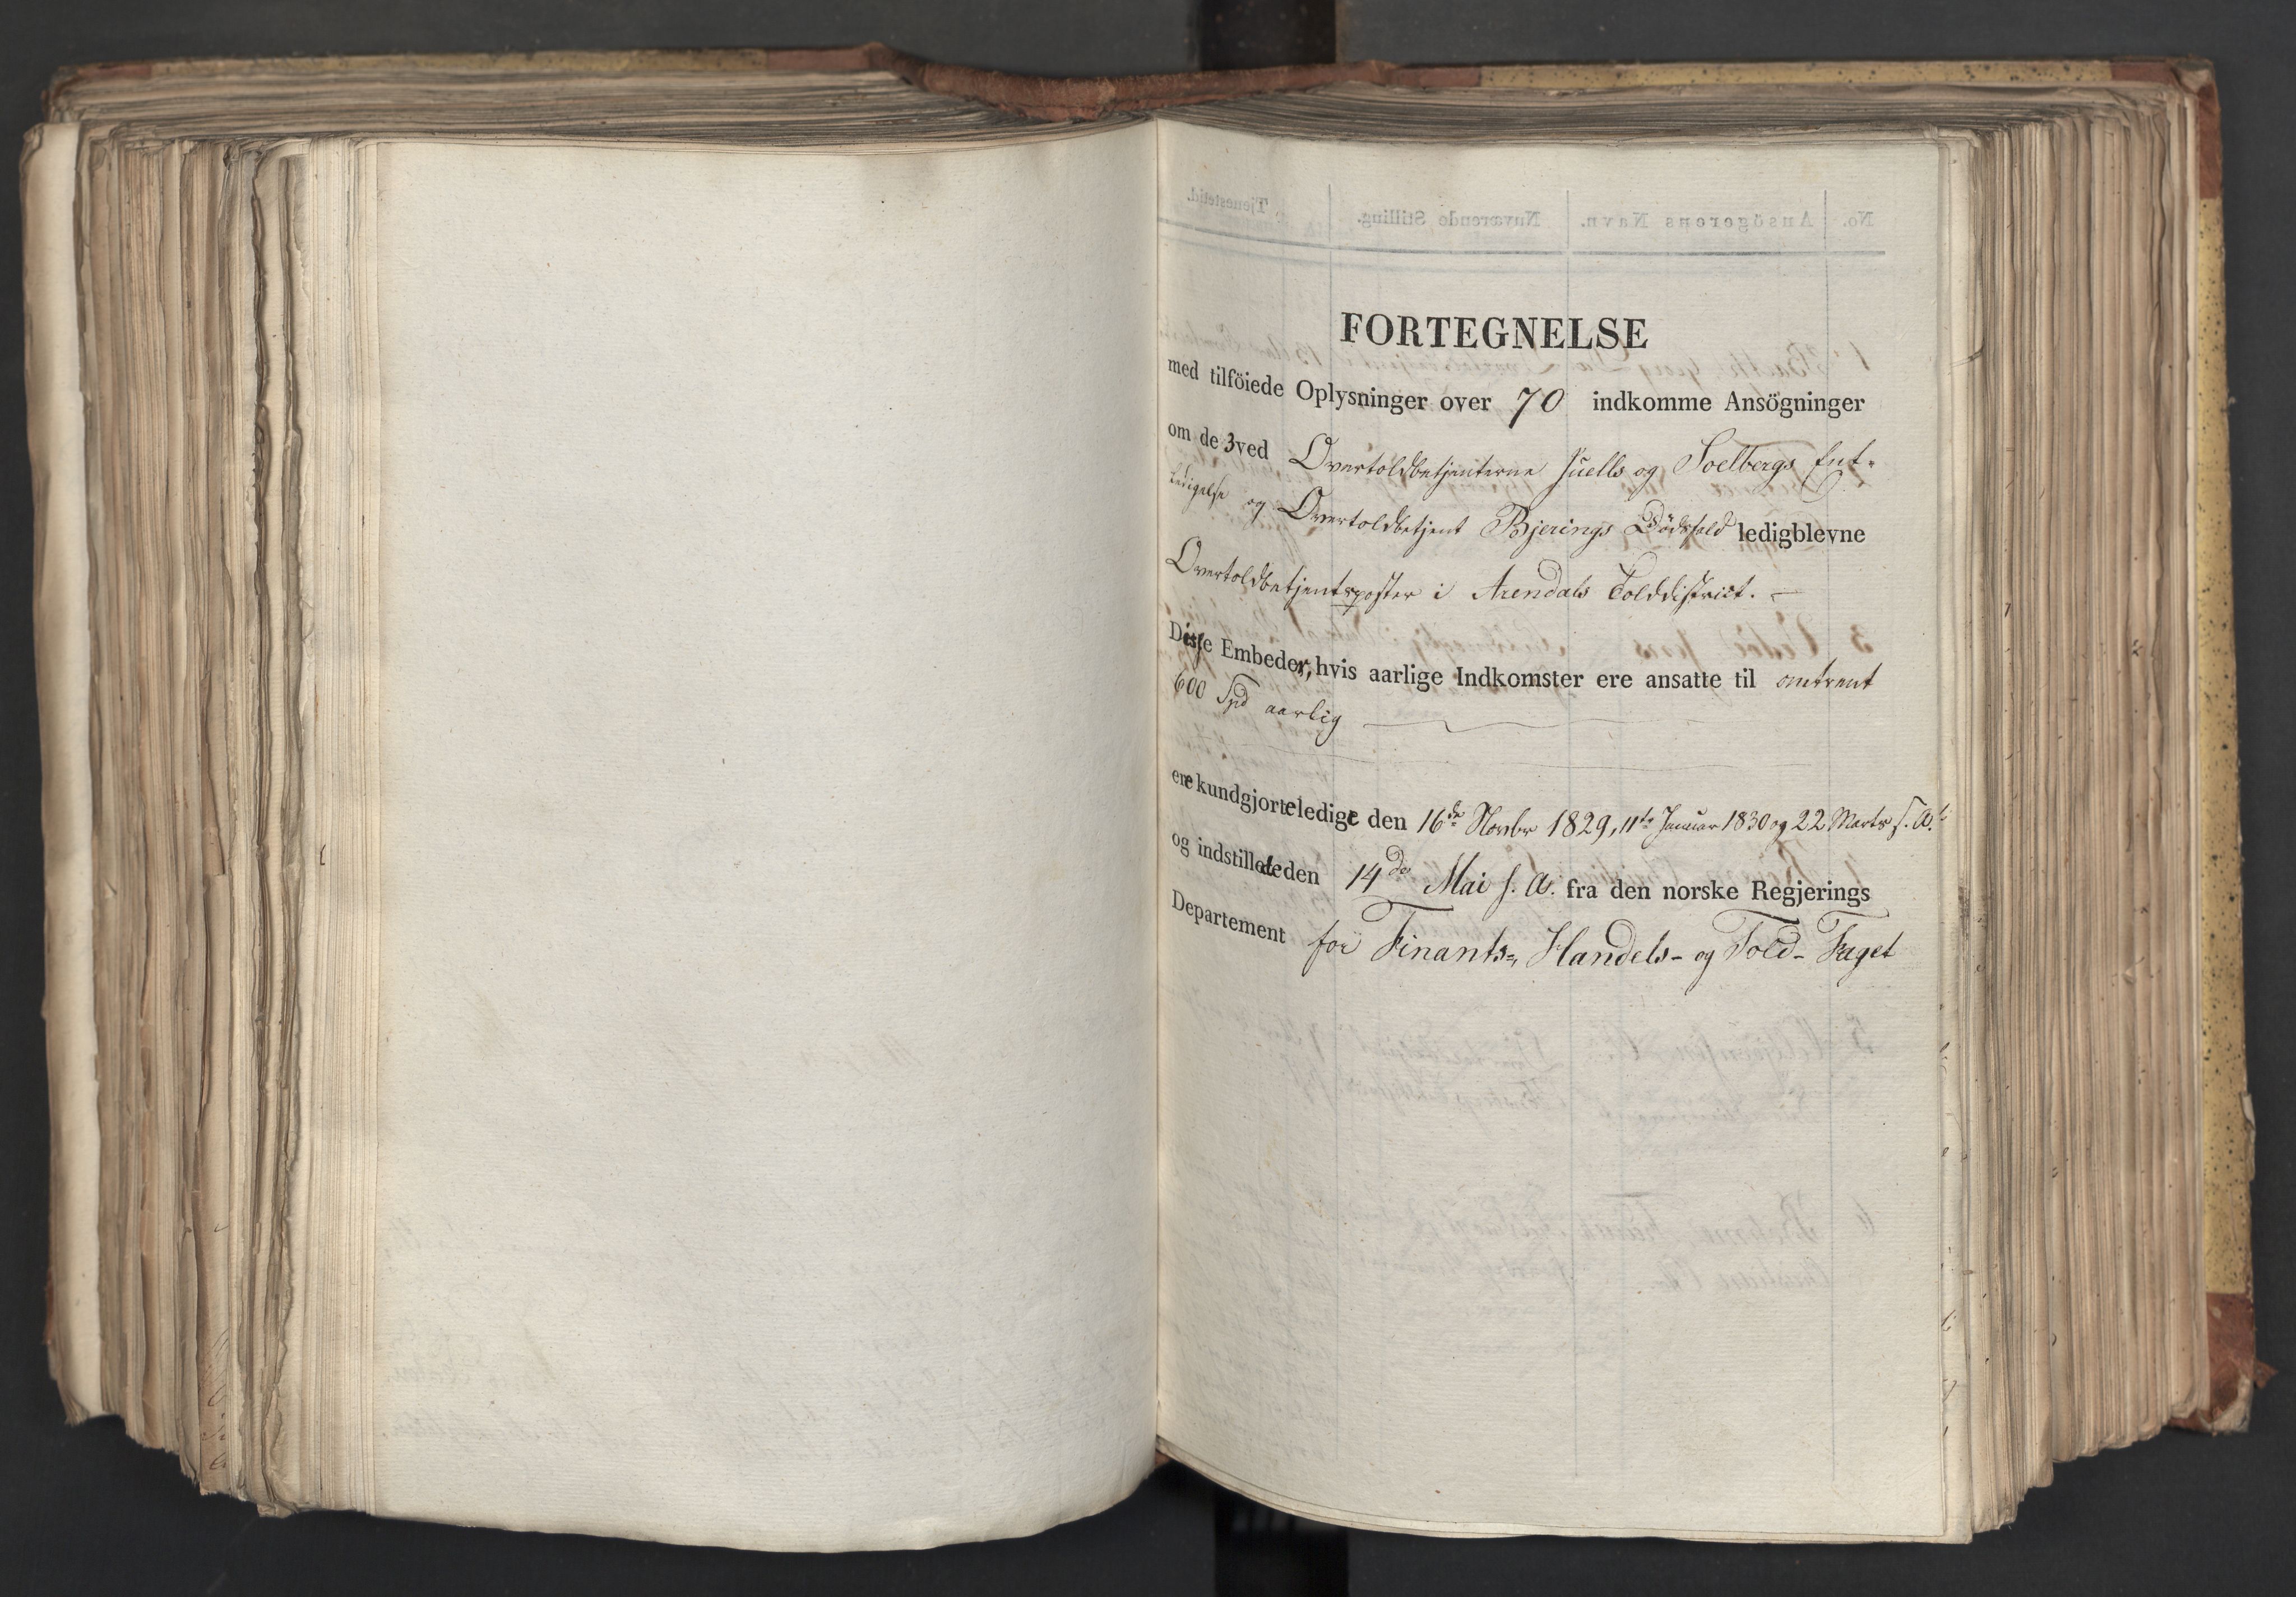 FORTEGNELSE
med tilföiede Oplysninger over 70 indkomme Ansögninger
om de 3 ved Overtoldbetjenterne Juells og Soelbergs Ent-
ledigelse og Overtoldbetjent Bjerings Dödsfald ledigblevne
Overtoldbetjentsposter i Arendals Tolddistrict. –
Disse Embeder, hvis aarlige Indkomster ere ansatte til omtrent
600 Spd aarlig
ere kundgjorte ledige den 16de Novbr 1829, 11te Januar 1830 og 22 Marts s. A.
og indstillede den 14de Mai s. A. fra den norske Regjerings
Departement for Finants-, Handels- og Told-Faget